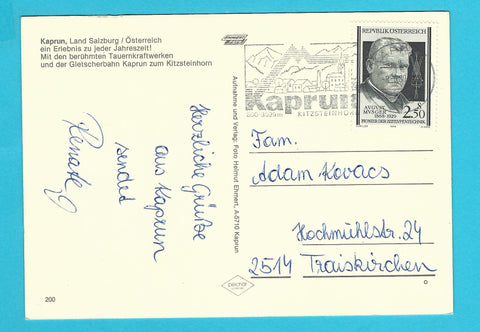 Kaprun, Land Salzburg / Österreich
ein Erlebnis zu jeder Jahreszeit!
Mit den berühmten Tauernkraftwerken
und der Gletscherbahn Kaprun zum Kitzsteinhorn
Herzliche Grüße
aus Kaprun
sendet
Renate
200
Aufnahme und Verlag: Foto Helmut Ehmert, A-5710 Kaprun
Kaprun
KITZSTEINHORN
REPUBLIK ÖSTERREICH
AUGUST
MUSGER
1868-1929
S
2.50
PIONIER DER ZEITLUPENTECHNIK
Fam.
Adam Kovacs
Hochmühlstr. 24
2514 Traiskirchen